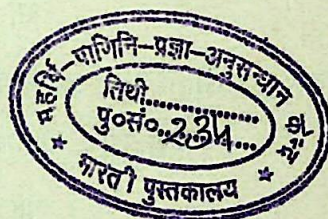 महर्षि-पाणिनि-प्रज्ञा-अनुसन्धान केन्द्र
तिथी..................
पु०सं०..234....
★ भारती पुस्तकालय ★